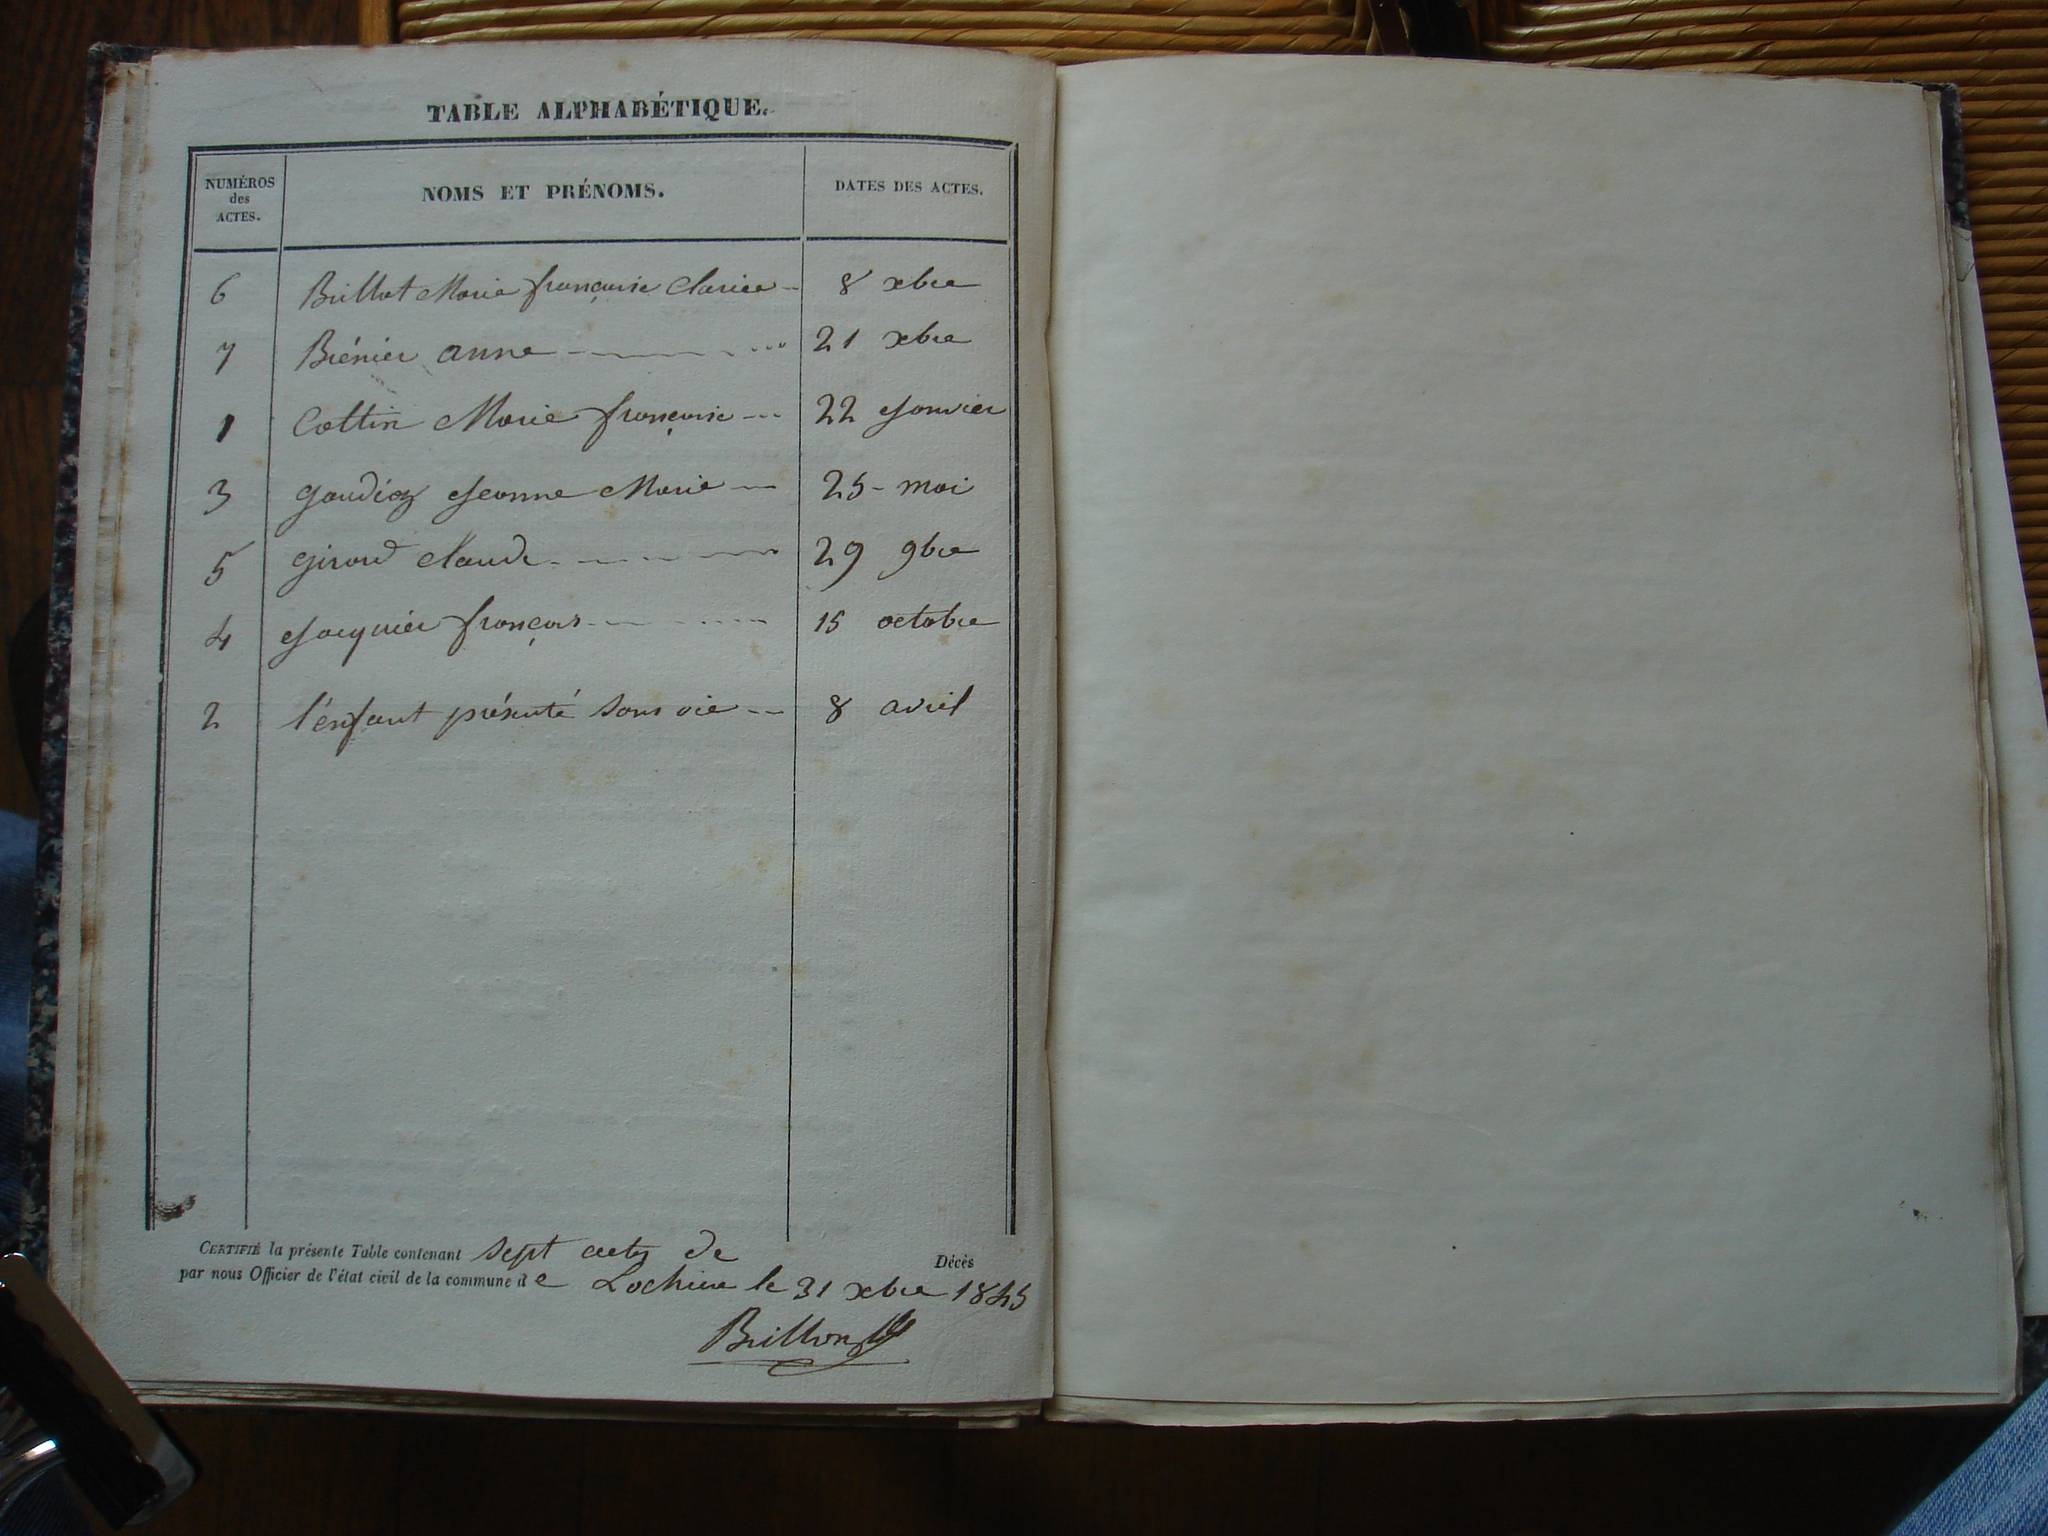 TABLE ALPHABÉTIQUE.
NUMÉROS des ACTES. NOMS ET PRÉNOMS. DATES DES ACTES.
6 Brillat Marie françoise Clarice 8 xbre
7 Brénier anne 21 xbre
1 Cottin Marie françoise 22 Janvier
3 gaudioz Jeanne Marie 25 mai
5 girard Claude 29 9bre
4 Jacquier françois 15 octobre
2 l'enfant présenté sans vie 8 avril
CERTIFIÉ la présente Table contenant sept actes de Décès
par nous Officier de l'état civil de la commune de Lochieu le 31 xbre 1845